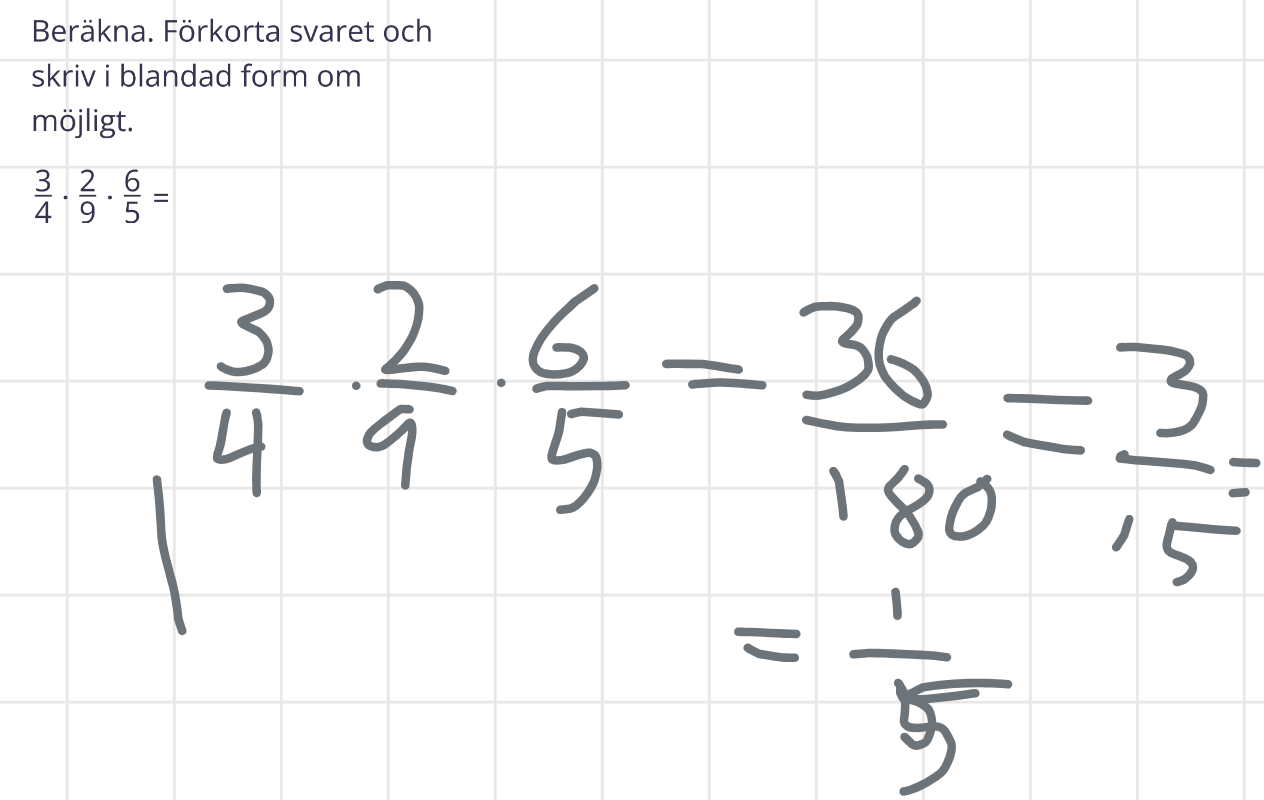 Beräkna. Förkorta svaret och
skriv i blandad form om
möjligt.
3/4 · 2/9 · 6/5 =
3/4 · 2/9 · 6/5 = 36/180 = 3/15 =
= 1/5